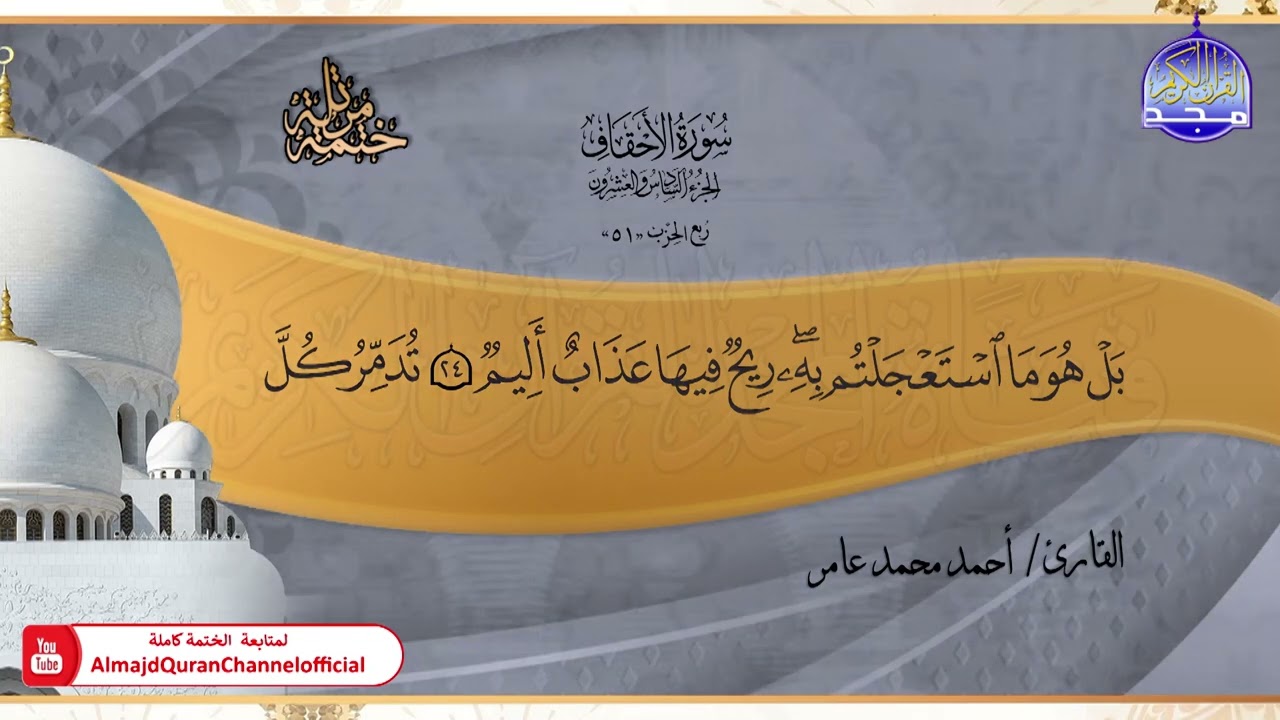 القرآن الكريم
مجد
ختمة مرتلة
سُورَةُ الأَحْقَافِ
الجزء السادس والعشرون
ربع الحزب «٥١»
بَلْ هُوَ مَا ٱسْتَعْجَلْتُم بِهِۦۖ رِيحٌ فِيهَا عَذَابٌ أَلِيمٌ ٢٤ تُدَمِّرُ كُلَّ
القارئ / أحمد محمد عامر
لمتابعة الختمة كاملة
You
Tube
AlmajdQuranChannelofficial